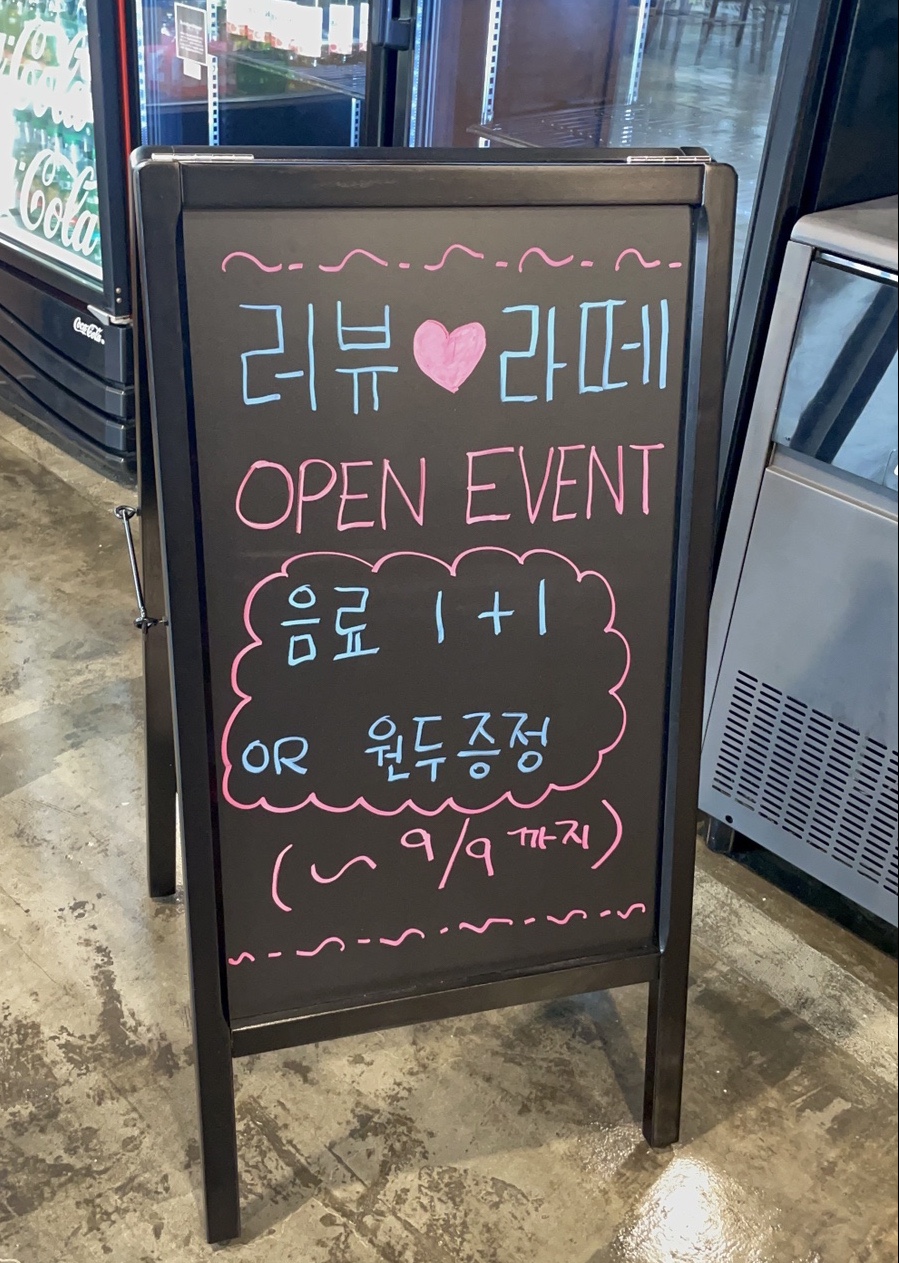 Cola
Coca-Cola
리뷰♥라떼
OPEN EVENT
음료 1+1
OR 원두증정
(~ 9/9 까지)